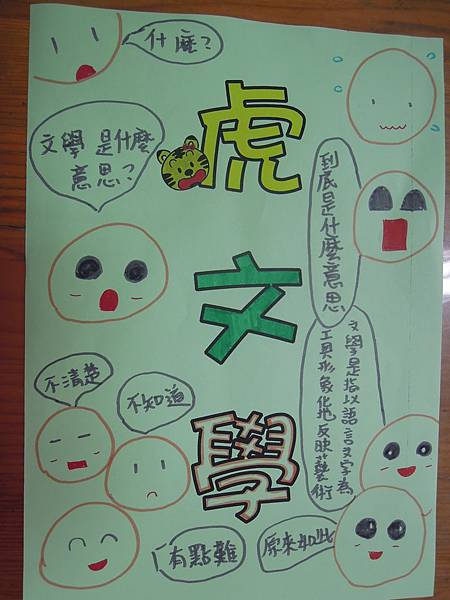 什麼？
文學是什麼
意思？
虎文學
到底是什麼意思
文學是指以語言文字為
工具形象化地反映藝術
不清楚
不知道
有點難
原來如此